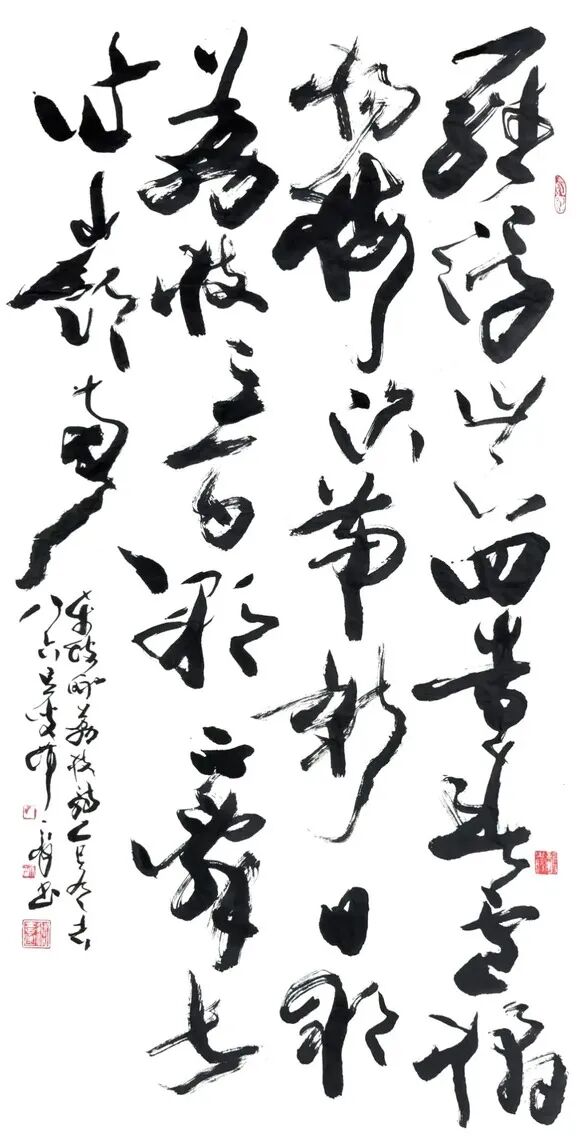 羅浮山下四時春盧橘
楊梅次第新日啖
荔枝三百顆不辭長
作嶺南人
東坡荔枝詩乙巳冬
八六叟書